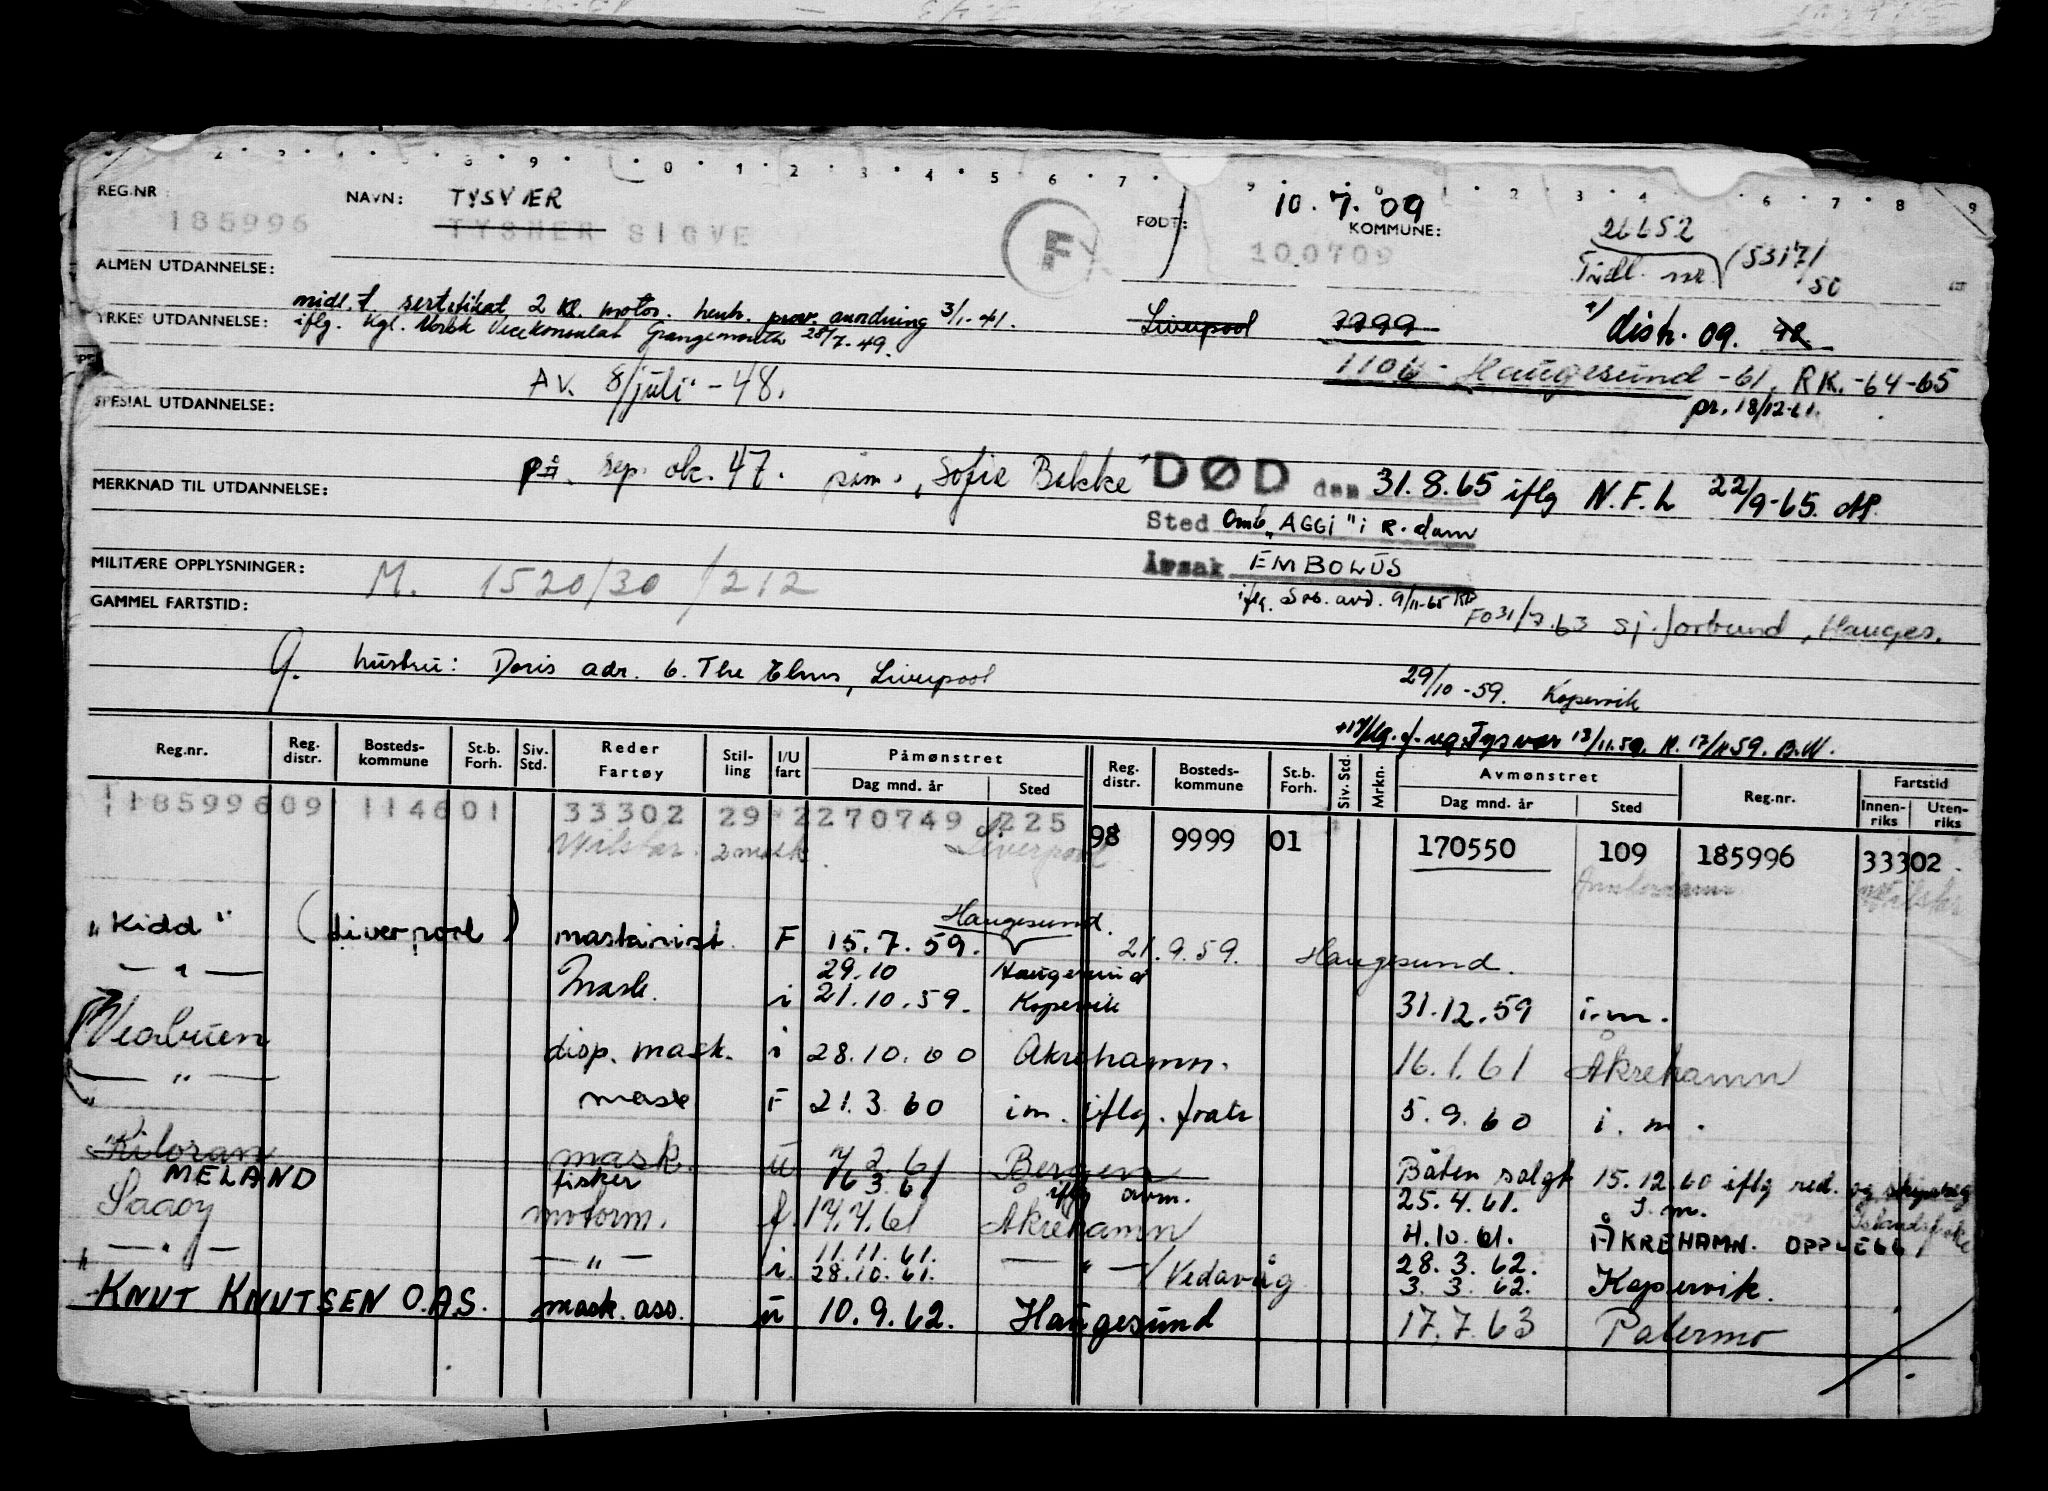 REG.NR NAVN: TYSVÆR 10.7.09
185996 TYSNER SIGVE F FØDT: 100709 KOMMUNE: 26652
ALMEN UTDANNELSE: Tidl. nr (5317/50
YRKES UTDANNELSE: midl.t sertifikat 2 kl. motor. henh. prov. anordning 3/1-41. Liverpool 9999 distr. 09.
iflg. Kgl. Norsk Vicekonsulat Grangemouth 28/7-49.
1106 - Haugesund -61, RK.-64-65
AV. 8/juli -48. pr. 18/12-61.
SPESIAL UTDANNELSE:
på. sep. ok. 47. "Sofie Bakke" DØD den 31.8.65 iflg N.F.L 22/9-65.
MERKNAD TIL UTDANNELSE:
Sted Omb "AGGI" i R.dam
Årsak EMBOLUS
MILITÆRE OPPLYSNINGER: M. 1520/30/212
iflg. avd. 9/11-65
GAMMEL FARTSTID: FO 31/7.63 sj.forbund, Hauges.
g. hustru: Doris adr. 6. The Elms, Liverpool 29/10-59. Kopervik
Tysvær 13/11.59. K. 17/11 59. B.M.
Reg.nr. Reg. distr. Bosteds-kommune St.b. Forh. Siv. Std. Reder Fartøy Stil-ling I/U fart Påmønstret Dag mnd. år Sted Reg. distr. Bosteds-kommune St.b. Forh. Siv. Std. Mrkn. Avmønstret Dag mnd. år Sted Reg.nr. Fartstid Innen-riks Uten-riks
18599609 114601 33302 29 2270749 225 98 9999 01 170550 109 185996 33302
Milstar. 2 mask. Liverpool Amsterdam Milstar
"Kidd" (Liverpool) maskinist. F 15.7.59. Haugesund. 21.9.59. Haugesund.
— " — Mask. i 29.10 21.10.59. Haugesund Kopervik 31.12.59 i.m.
Veabuen disp. mask. i 28.10.60 Åkrehamn. 16.1.61 Åkrehamn
— " — mask F 21.3.60 i m. iflg. 5.9.60 i. m.
"Kiloran mask. u 7.2.61 Bergen Båten solgt 15.12.60 iflg red. og
MELAND fisker 16 3.61 iflg avm. 25.4.61. I.m.
Saaoy motorm. f. 17.7.61 Åkrehamn 4.10.61. ÅKREHAMN. OPPLEGG
" — " — — " — i. 11.11.61. 28.10.61. — " — / Vedavåg 28.3.62. 3.3.62. Kopervik.
KNUT KNUTSEN O.A.S. mask. ass. u 10.9.62. Haugesund 17.7.63 Palermo